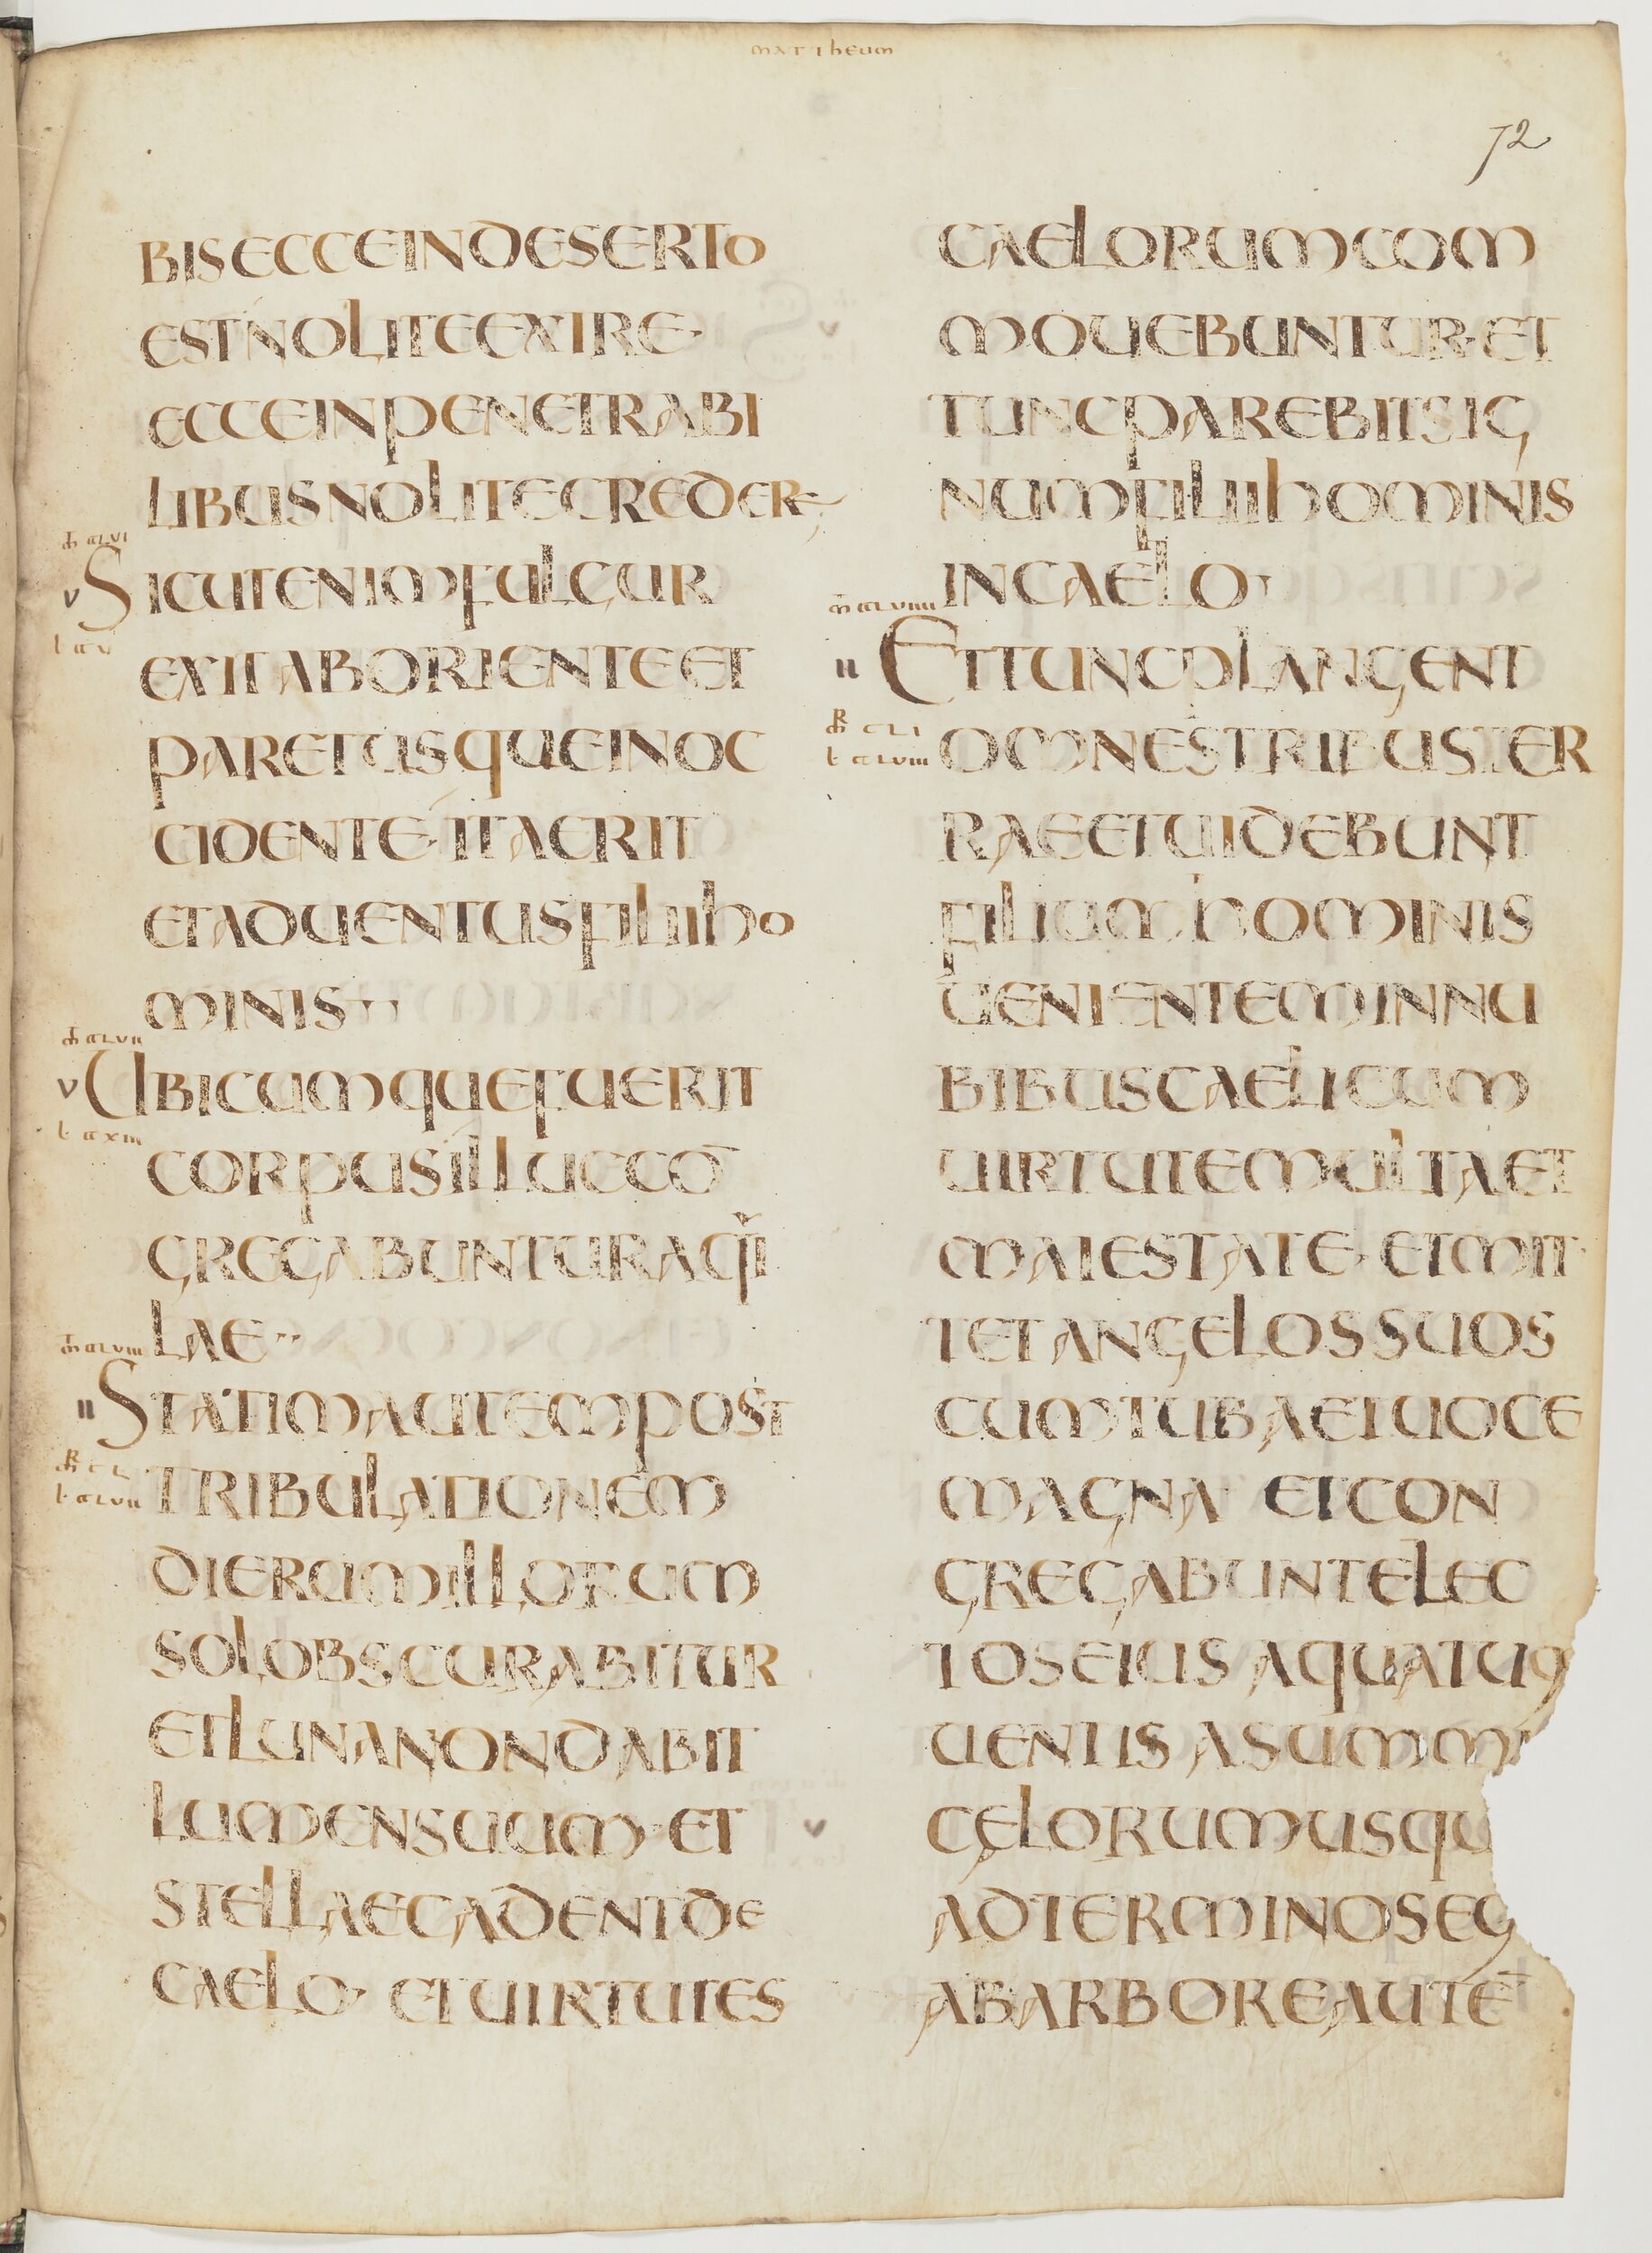 MATTHEUM
72
BISECCEINDESERTO
ESTNOLITEEXIRE·
ECCEINPENETRABI
LIBUSNOLITECREDERE
SICUTENIMFULGUR
EXITABORIENTEET
PARETUSQUEINOC
CIDENTE·ITAERIT
ETADUENTUSFILIIHO
MINIS
UBICUMQUEFUERIT
CORPUSILLUCCO
GREGABUNTURAQI
LAE
STATIMAUTEMPOST
TRIBULATIONEM
DIERUMILLORUM
SOLOBSCURABITUR
ETLUNANONDABIT
LUMENSUUM·ET
STELLAECADENTDE
CAELO· ETUIRTUTES
CAELORUMCOM
MOUEBUNTUR·ET
TUNCPAREBITSIG
NUMFILIIHOMINIS
INCAELO
ETTUNCPLANGENT
OMNESTRIBUSTER
RAEETUIDEBUNT
FILIUMHOMINIS
UENIENTEMINNU
BIBUSCAELICUM
UIRTUTEMULTAET
MAIESTATE· ETMIT
TETANGELOSSUOS
CUMTUBAETUOCE
MAGNA ETCON
GREGABUNTELEC
TOSEIUS AQUATUO
UENTIS ASUMMI
CĘLORUMUSQU
ADTERMINOSEO
ABARBOREAUTĒ